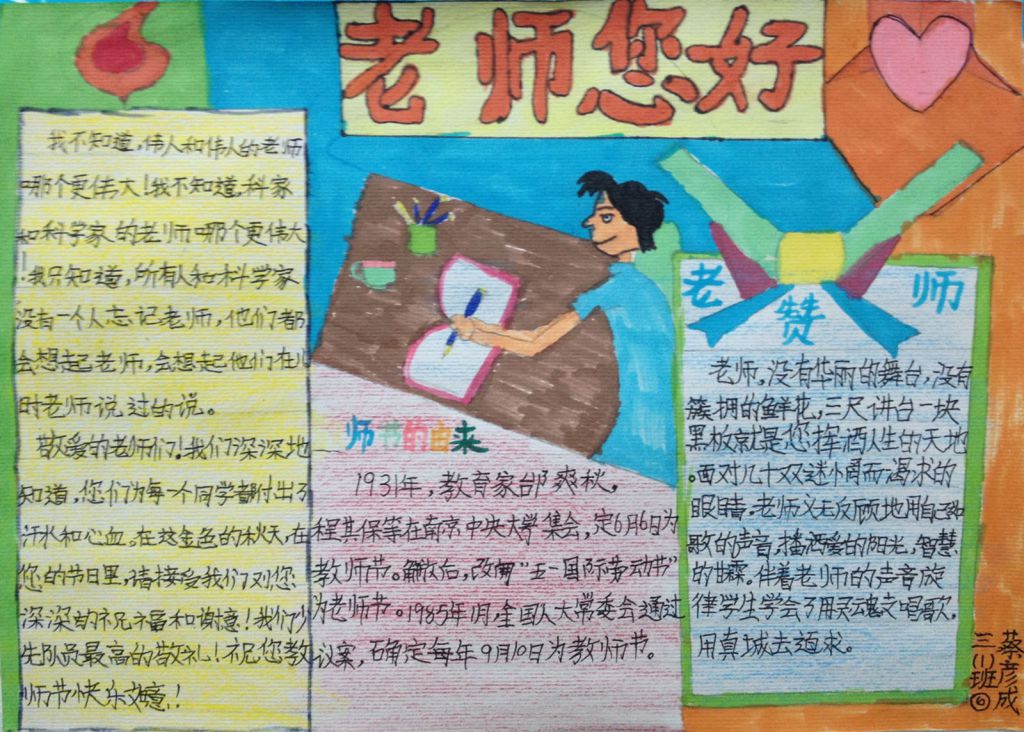 老师您好
我不知道,伟人和伟人的老师
哪个更伟大!我不知道,科家
和科学家的老师哪个更伟大
!我只知道,所有人和科学家
没有一个人忘记老师,他们都
会想起老师,会想起他们在儿
时老师说过的说。
敬爱的老师们!我们深深地
知道,您们为每一个同学都付出了
汗水和心血。在这金色的秋天,在
您的节日里,请接受我们对您
深深的祝福和谢意!我们少
先队员最高的敬礼!祝您教
师节快乐
师节的由来
1931年,教育家邰爽秋。
程其保等在南京中央大学集会,定6月6日为
教师节。解放后,改用"五一国际劳动节"
为老师节。1985年1月,全国人大常委会通过
议案,确定每年9月10日为教师节。
老师赞
老师,没有华丽的舞台,没有
簇拥的鲜花,三尺讲台一块
黑板就是您挥洒人生的天地
。面对几十双迷惘而渴求的
眼睛。老师义无反顾地用自己
歌的声音,播洒爱的阳光,智慧
的甘霖。伴着老师的声音旋
律学生学会了用灵魂支唱歌,
用真城去追求。
三(1)班
蔡彦成